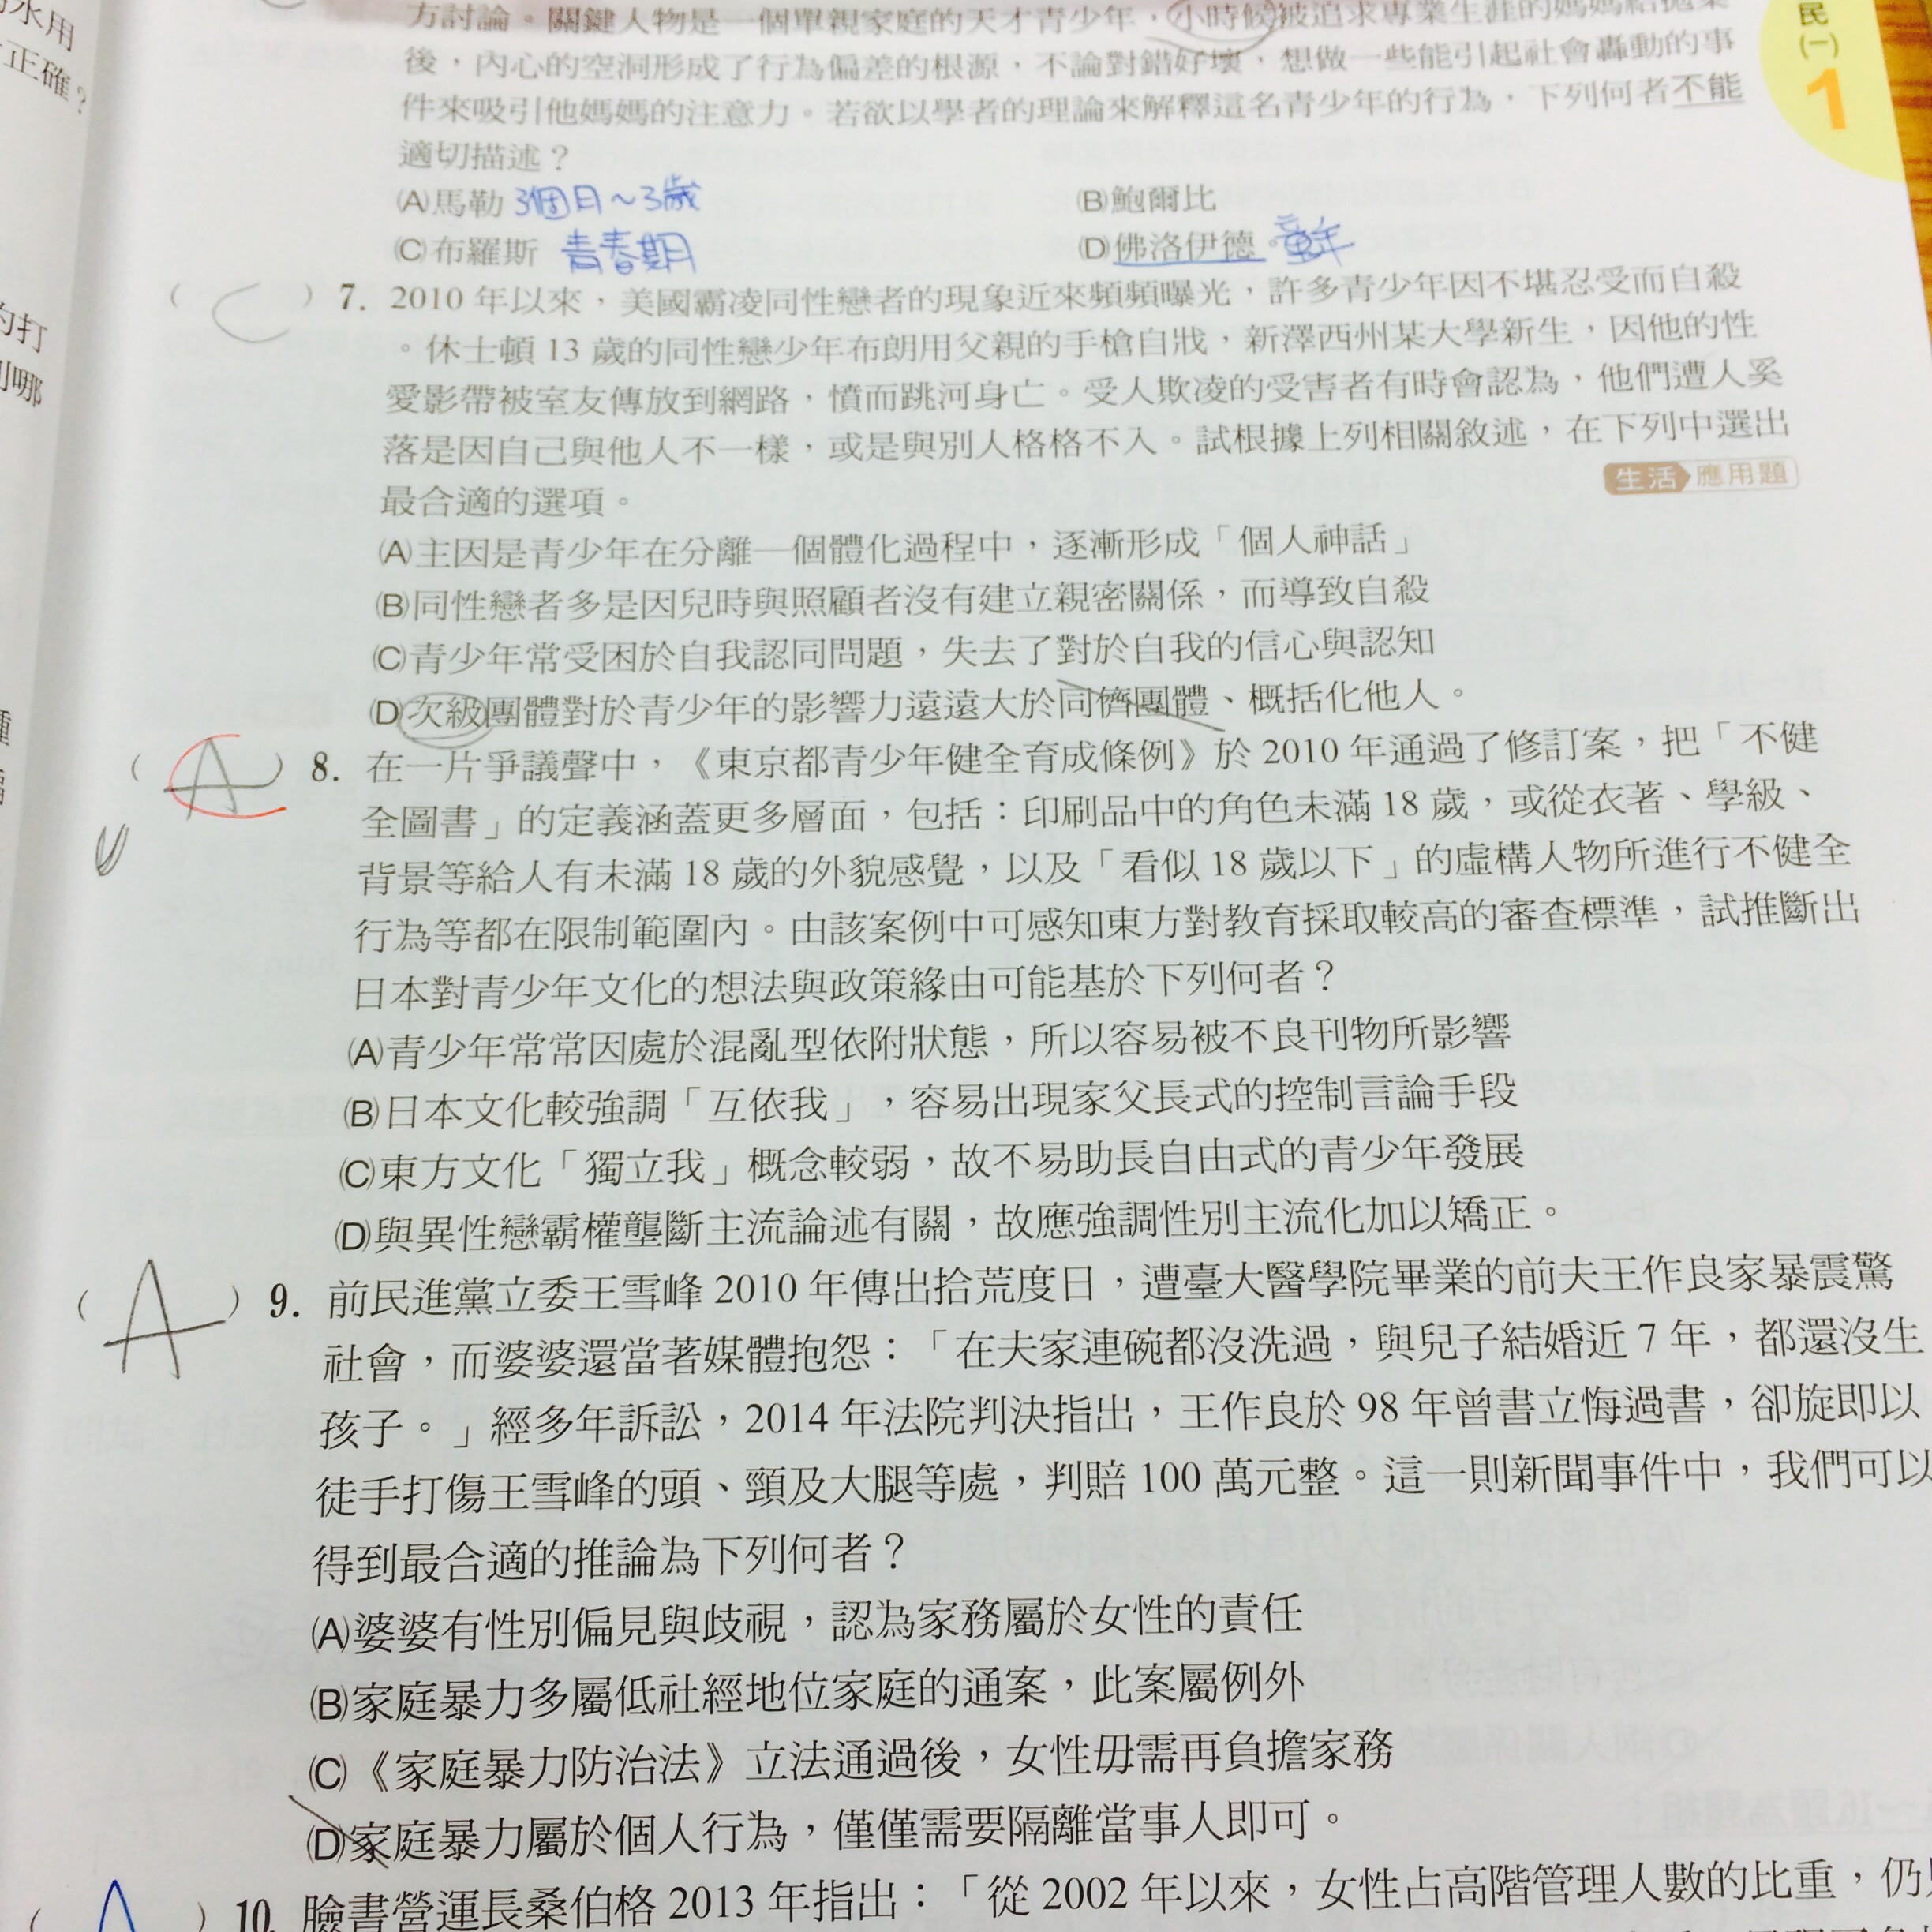 水用
正確？
的打
列哪
民
(一)
1
方討論。關鍵人物是一個單親家庭的天才青少年，小時候被追求專業生涯的媽媽給拋棄
後，內心的空洞形成了行為偏差的根源，不論對錯好壞，想做一些能引起社會轟動的事
件來吸引他媽媽的注意力。若欲以學者的理論來解釋這名青少年的行為，下列何者不能
適切描述？
(A)馬勒 3個月～3歲 (B)鮑爾比
(C)布羅斯 青春期 (D)佛洛伊德。童年
( C ) 7. 2010 年以來，美國霸凌同性戀者的現象近來頻頻曝光，許多青少年因不堪忍受而自殺
。休士頓 13 歲的同性戀少年布朗用父親的手槍自戕，新澤西州某大學新生，因他的性
愛影帶被室友傳放到網路，憤而跳河身亡。受人欺凌的受害者有時會認為，他們遭人奚
落是因自己與他人不一樣，或是與別人格格不入。試根據上列相關敘述，在下列中選出
最合適的選項。 生活 應用題
(A)主因是青少年在分離—個體化過程中，逐漸形成「個人神話」
(B)同性戀者多是因兒時與照顧者沒有建立親密關係，而導致自殺
(C)青少年常受困於自我認同問題，失去了對於自我的信心與認知
(D)次級團體對於青少年的影響力遠遠大於同儕團體、概括化他人。
( A C ) 8. 在一片爭議聲中，《東京都青少年健全育成條例》於 2010 年通過了修訂案，把「不健
全圖書」的定義涵蓋更多層面，包括：印刷品中的角色未滿 18 歲，或從衣著、學級、
背景等給人有未滿 18 歲的外貌感覺，以及「看似 18 歲以下」的虛構人物所進行不健全
行為等都在限制範圍內。由該案例中可感知東方對教育採取較高的審查標準，試推斷出
日本對青少年文化的想法與政策緣由可能基於下列何者？
(A)青少年常常因處於混亂型依附狀態，所以容易被不良刊物所影響
(B)日本文化較強調「互依我」，容易出現家父長式的控制言論手段
(C)東方文化「獨立我」概念較弱，故不易助長自由式的青少年發展
(D)與異性戀霸權壟斷主流論述有關，故應強調性別主流化加以矯正。
( A ) 9. 前民進黨立委王雪峰 2010 年傳出拾荒度日，遭臺大醫學院畢業的前夫王作良家暴震驚
社會，而婆婆還當著媒體抱怨：「在夫家連碗都沒洗過，與兒子結婚近 7 年，都還沒生
孩子。」經多年訴訟，2014 年法院判決指出，王作良於 98 年曾書立悔過書，卻旋即以
徒手打傷王雪峰的頭、頸及大腿等處，判賠 100 萬元整。這一則新聞事件中，我們可以
得到最合適的推論為下列何者？
(A)婆婆有性別偏見與歧視，認為家務屬於女性的責任
(B)家庭暴力多屬低社經地位家庭的通案，此案屬例外
(C)《家庭暴力防治法》立法通過後，女性毋需再負擔家務
(D)家庭暴力屬於個人行為，僅僅需要隔離當事人即可。
( A ) 10. 臉書營運長桑伯格 2013 年指出：「從 2002 年以來，女性占高階管理人數的比重，仍